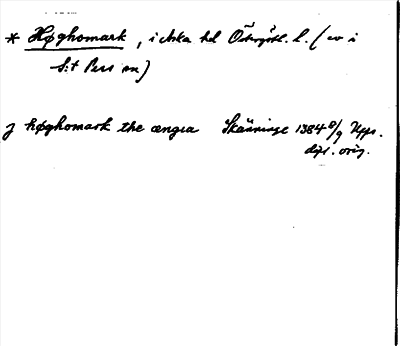 * Høghomark, i okka hd Östergötl. l. (ev i
S:t Pers sn)
J høghomark the ængia Skänninge 1384 8/9 Upps.
dipl. orig.